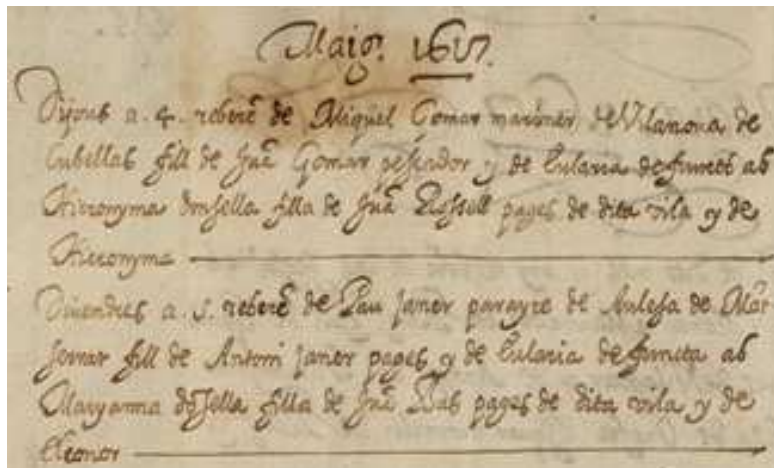 Maig. 1617.
Dijous a 4. reberẽ de Miquel Gomar mariner de Vilanova de
Cubellas fill de Juã Gomar pescador y de Eularia defuncts ab
Hieronyma donsella filla de Juã Rossell pages de dita vila y de
Hieronyma
Divendres a 5. reberẽ de Pau Janer parayre de Aulesa de Mõt
serrat fill de Antoni Janer pages y de Eularia defuncta ab
Maryanna dõsella filla de Juã Bas pages de dita vila y de
Eleonor